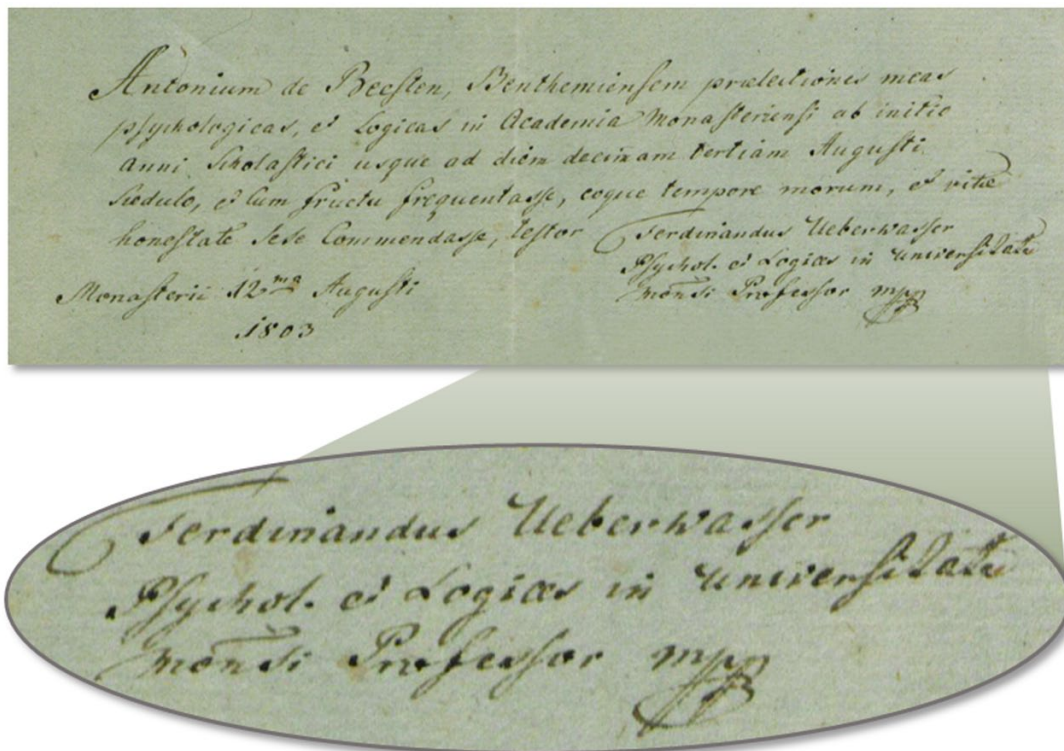 Antonium de Beesten, Benthemiensem prælectionis meas
psychologicas, et Logicas in Academia Monasteriensi ab initio
anni Scholastici usque ad diem decimam tertiam Augusti
sedulo, et cum fructu frequentasse, eoque tempore morum, et vitæ
honestate sese Commendasse, testor
Ferdinandus Ueberwasser
Psychol. et Logices in universitate
monsi Professor mpp
Monasterii 12ma Augusti
1803
Ferdinandus Ueberwasser
Psychol. et Logices in universitate
monsi Professor mpp